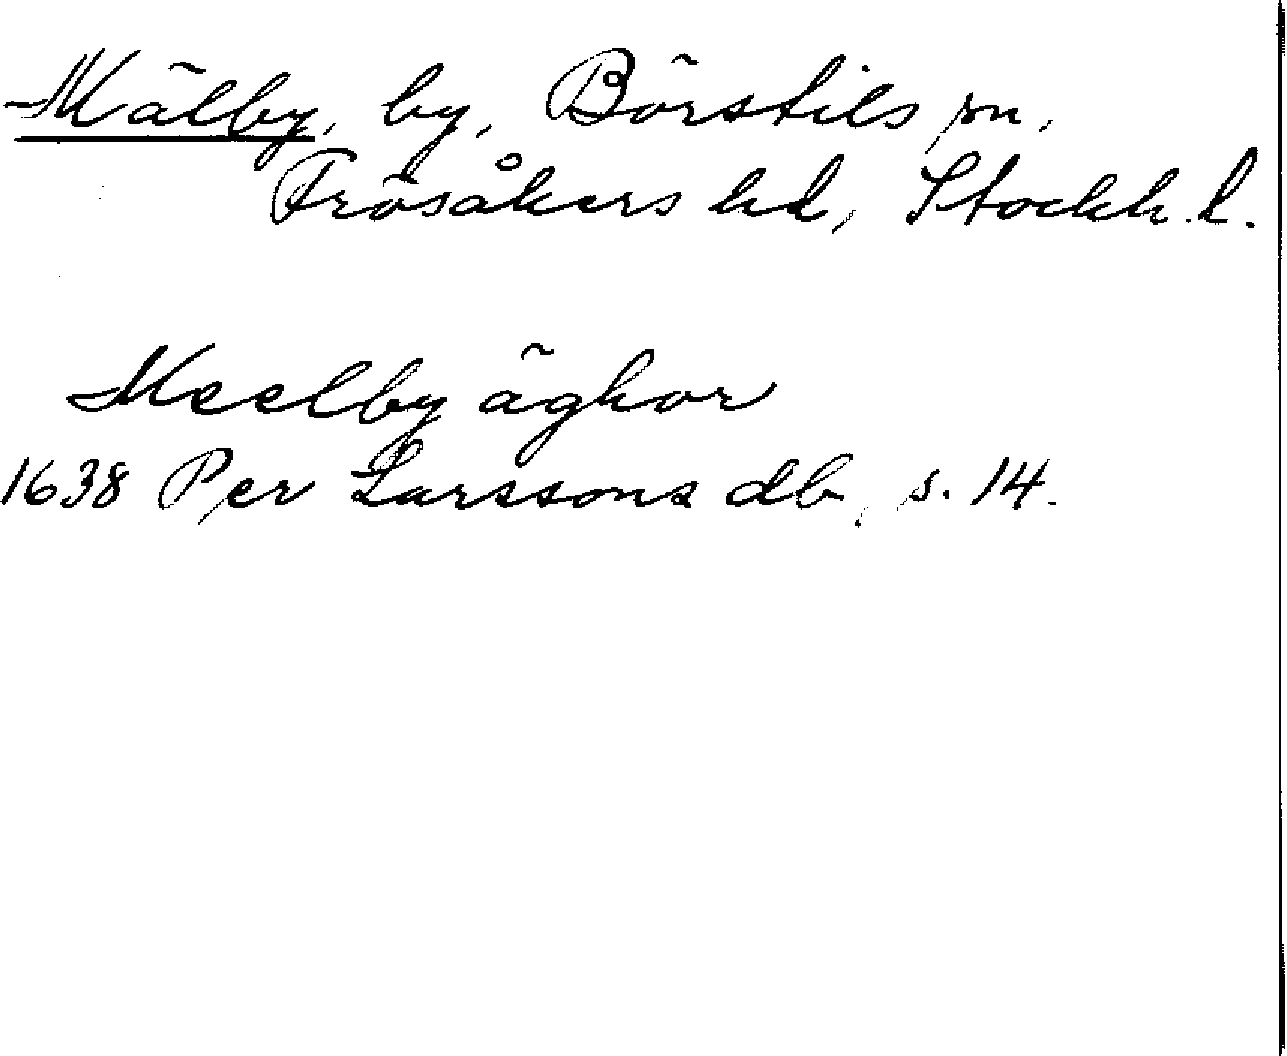 Mälby, by, Börstils sn,
Frösåkers hd, Stockh. l.
Meelby äghor
1638 Per Larssons db, s. 14.